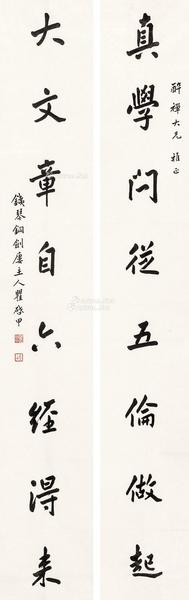 醉禪大兄雅正
真學问從五倫做起
大文章自六經得来
鐵琴銅劍廔主人瞿啓甲